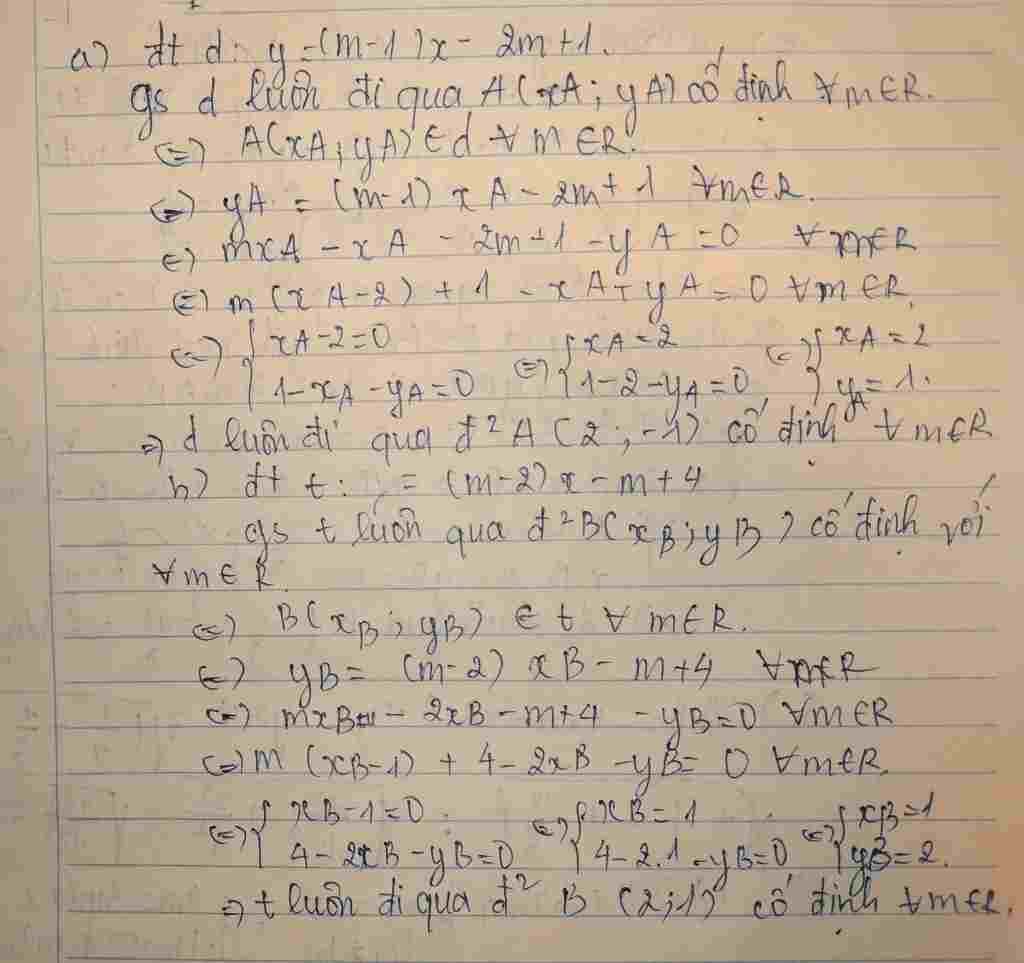 a) đt d: y=(m-1)x - 2m+1.
gs d luôn đi qua A(xA; yA) cố định ∀m∈R.
(=) A(xA; yA) ∈ d ∀ m ∈R.
(=) yA = (m-1) xA - 2m+1 ∀m∈R.
(=) mxA - xA - 2m+1 - yA =0 ∀m∈R
(=) m(xA-2) + 1 - xA - yA = 0 ∀m∈R.
(=) { xA-2=0 (=) { xA=2 (=) { xA=2
1-xA-yA=0 1-2-yA=0 yA=1.
=> d luôn đi qua đ² A(2;-1) cố định ∀m∈R
b) đt t: = (m-2)x - m+4
gs t luôn qua đ²B(xB; yB) cố định với
∀m∈R.
(=) B(xB; yB) ∈ t ∀ m∈R.
(=) yB= (m-2) xB - m+4 ∀m∈R
(=) mxB - 2xB - m+4 - yB=0 ∀m∈R
(=) m (xB-1) + 4-2xB -yB= 0 ∀m∈R.
(=) { xB-1=0 (=) { xB=1 (=) { xB=1
4-2xB-yB=0 4-2.1-yB=0 yB=2.
=> t luôn đi qua đ² B (2;1) cố định ∀m∈R.